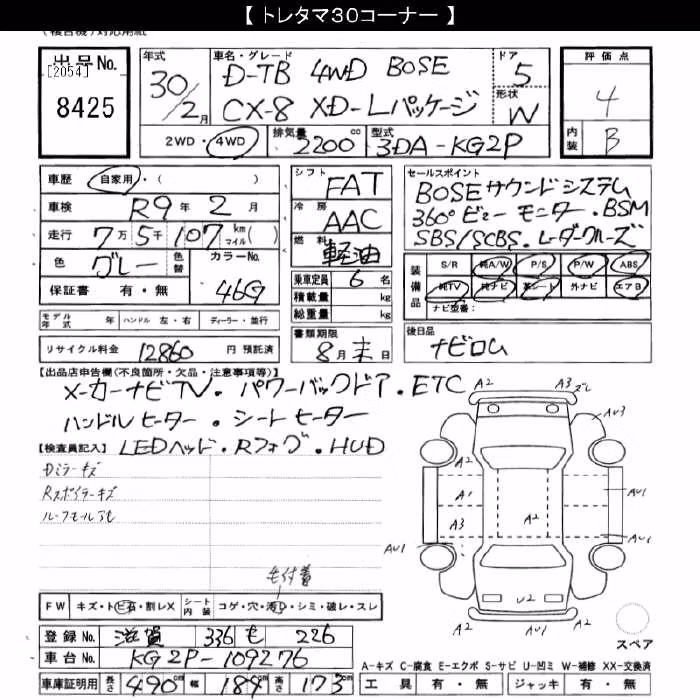 【 トレタマ30コーナー 】
出品No.
[2054]
8425
年式
30/2月
車名・グレード
D-TB 4WD BOSE
CX-8 XD-Lパッケージ
ドア
5
形状
W
2WD・4WD
排気量
2200cc
型式
3DA-KG2P
評価点
4
内装
B
車歴 自家用・( )
車検 R9年 2月
走行 7万5千107 km マイル( )
色 グレー 色替
カラーNo.
46G
保証書 有・無
シフト FAT
冷房 AAC
燃料 軽油
乗車定員 6名
積載量 kg
総重量 kg
セールスポイント
BOSEサウンドシステム
360°ビューモニター.BSM
SBS/SCBS.レーダークルーズ
装備品
S/R 純A/W P/S P/W ABS
純TV 純ナビ 革シート 外ナビ エアB
ナビ型番:
モデル年式 年 ハンドル 左・右 ディーラー・並行
リサイクル料金 12860 円 預託済
書類期限
8月末日
後日品
ナビロム
【出品店申告欄(不良箇所・欠品・注意事項等)】
メーカーナビTV.パワーバックドア.ETC
ハンドルヒーター.シートヒーター
LEDヘッド.Rフォグ.HUD
【検査員記入】
Rスポイラーキズ
毛付着
FW キズ・トビ石・割レX
シート内装 コゲ・穴・汚レ・シミ・破レ・スレ
登録No. 滋賀 336 も 226
車台No. KG2P-109276
車庫証明用 長さ 490cm 幅 184cm 高さ 173cm
A2 A3 ズレ
AU3
A2
A1
A3
A2
AU1
AU1
AU1
U2
A2
スペア
A-キズ C-腐食 E-エクボ S-サビ U-凹ミ W-補修 XX-交換済
工具 有・無 ジャッキ 有・無